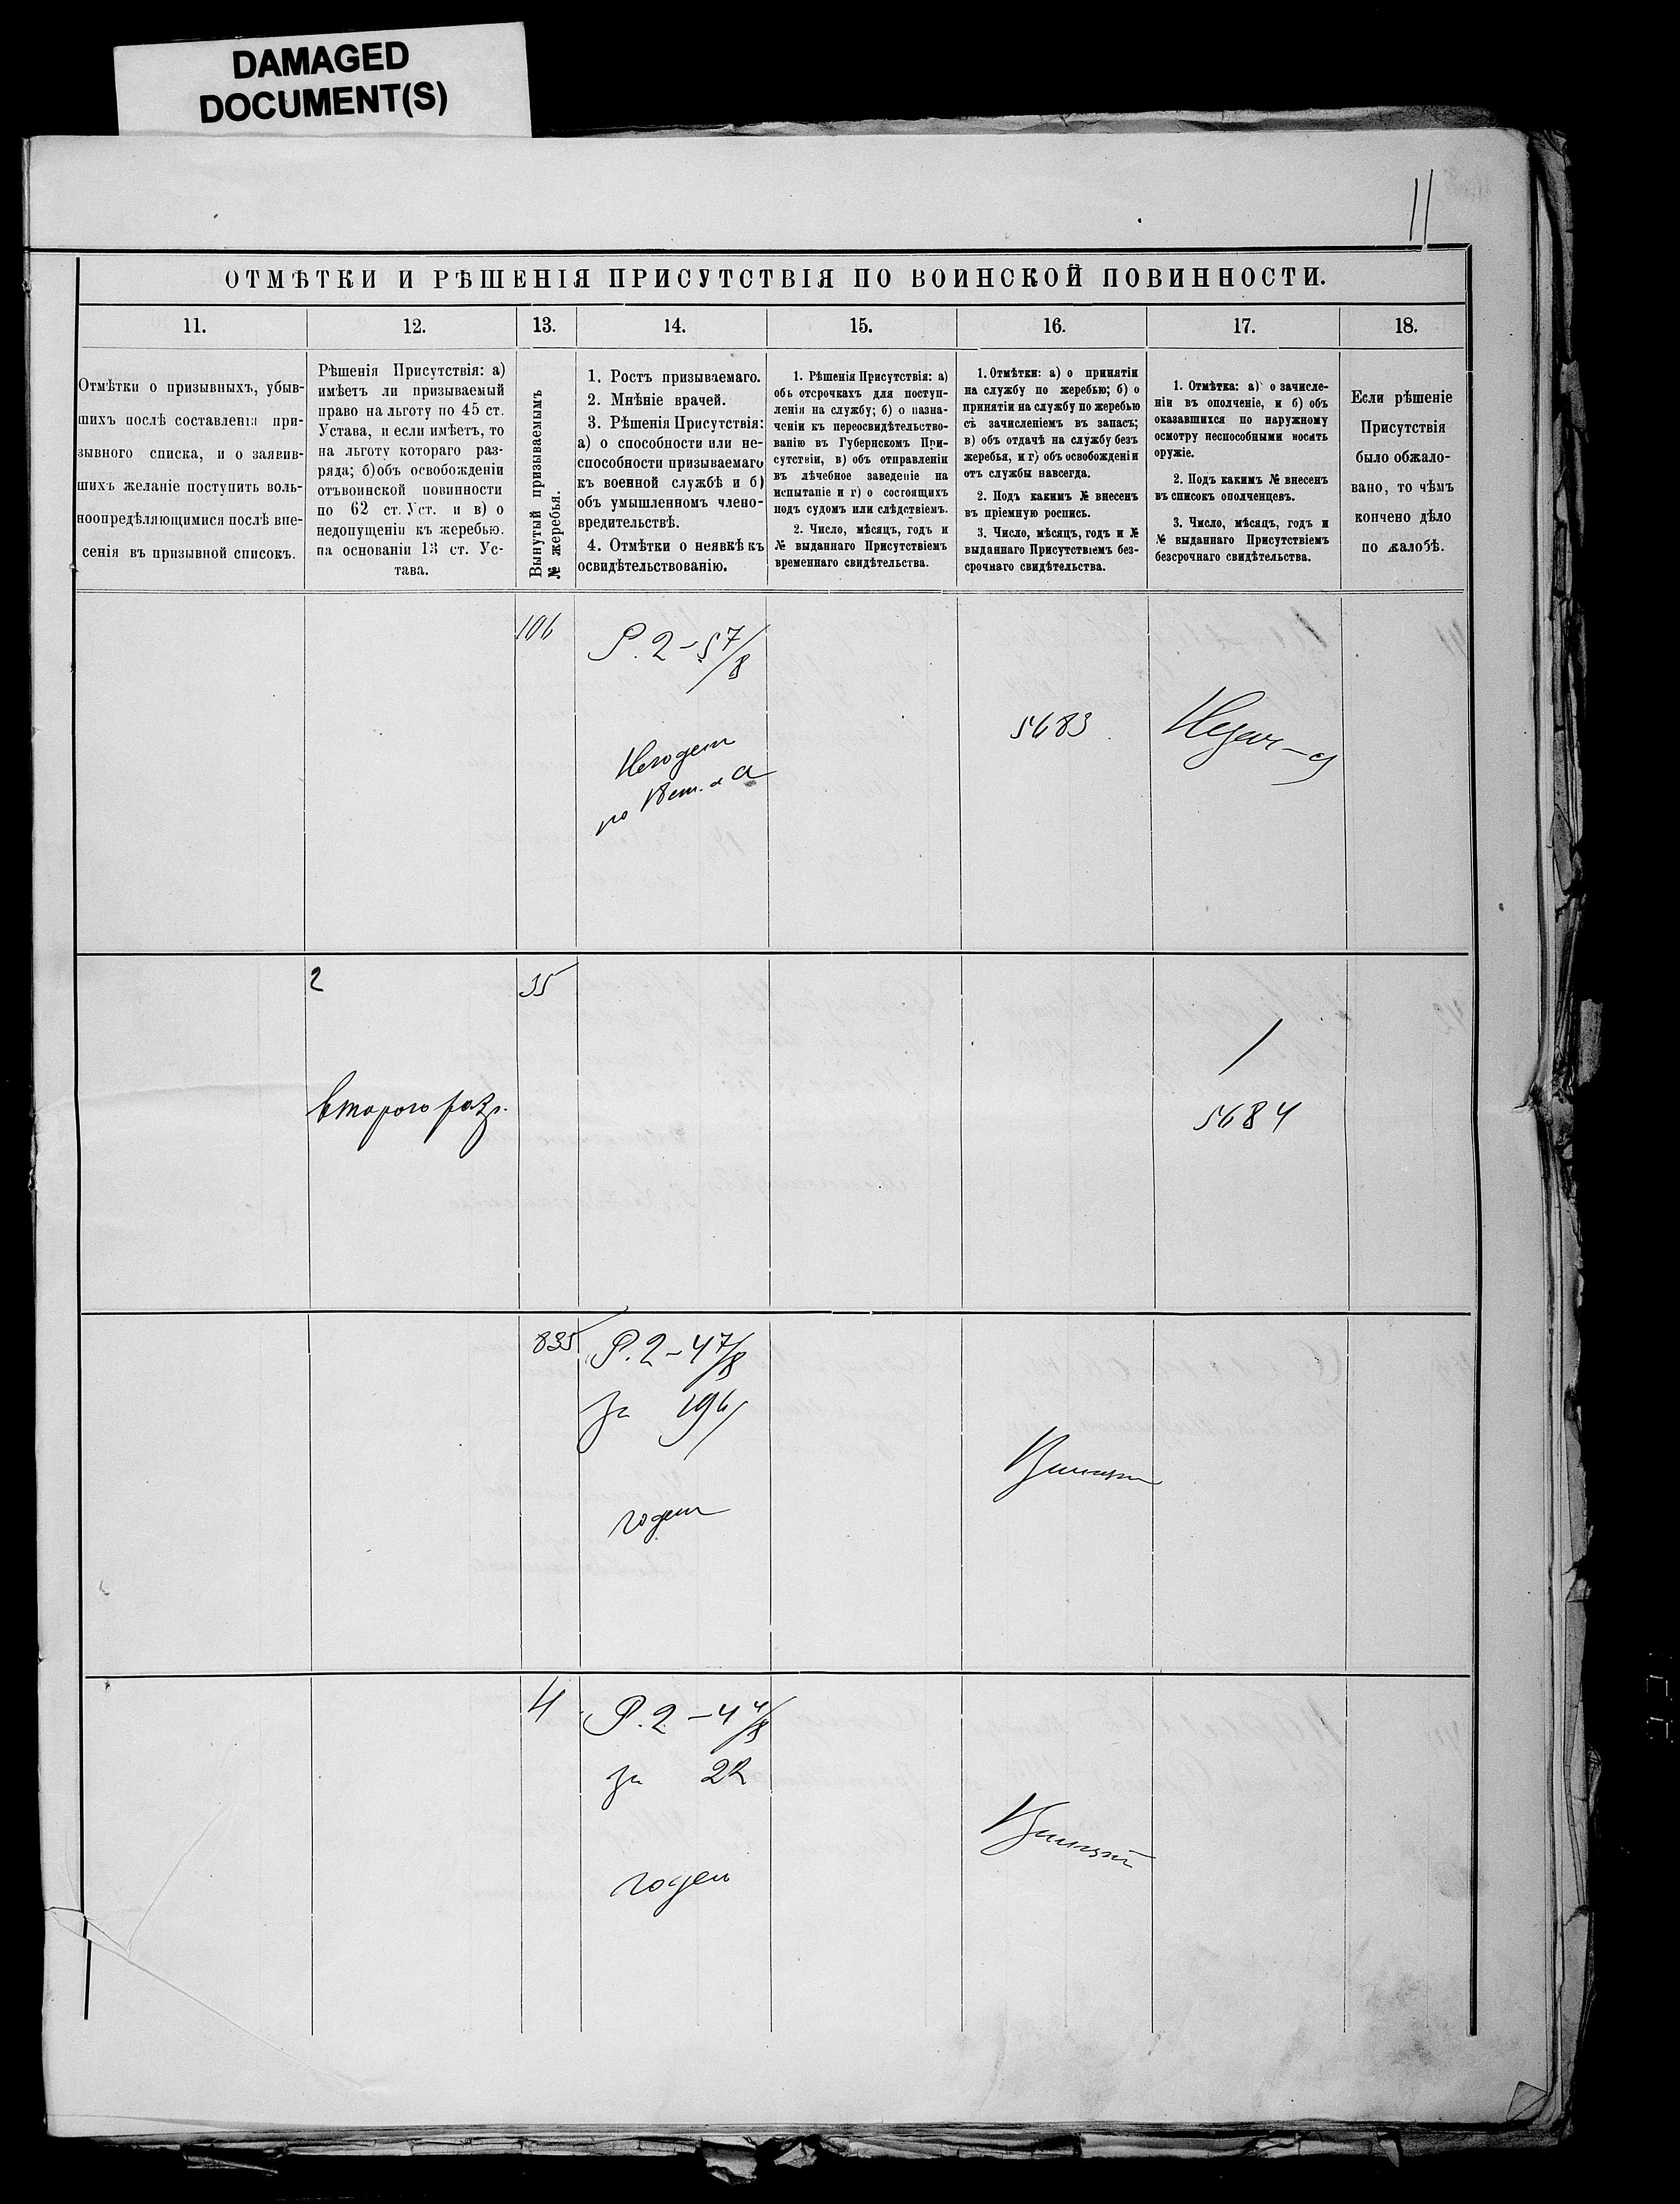 DAMAGED
DOCUMENT(S)
11
ОТМѢТКИ И РѢШЕНІЯ ПРИСУТСТВІЯ ПО ВОИНСКОЙ ПОВИННОСТИ.
11.
12.
13.
14.
15.
16.
17.
18.
Отмѣтки о призывныхъ, убыв-
шихъ послѣ составленія при-
зывного списка, и о заявив-
шихъ желаніе поступить воль-
ноопредѣляющимися послѣ вне-
сенія въ призывной списокъ.
Рѣшенія Присутствія: а)
имѣетъ ли призываемый
право на льготу по 45 ст.
Устава, и если имѣетъ, то
на льготу котораго раз-
ряда; б)объ освобожденіи
отъвоинской повинности
по 62 ст. Уст. и в) о
недопущеніи къ жеребью.
на основаніи 13 ст. Ус-
тава.
Вынутый призываемымъ
№ жеребья.
1. Ростъ призываемаго.
2. Мнѣніе врачей.
3. Рѣшенія Присутствія:
а) о способности или не-
способности призываемаго
къ военной службѣ и б)
объ умышленномъ члено-
вредительствѣ.
4. Отмѣтки о неявкѣ къ
освидѣтельствованію.
1. Рѣшенія Присутствія: а)
объ отсрочкахъ для поступ-
ленія на службу; б) о назна-
ченіи къ переосвидѣтельство-
ванію въ Губернскомъ При-
сутствіи, в) объ отправленіи
въ лѣчебное заведеніе на
испытаніе и г) о состоящихъ
подъ судомъ или слѣдствіемъ.
2. Число, мѣсяцъ, годъ и
№ выданнаго Присутствіемъ
временнаго свидѣтельства.
1. Отмѣтки: а) о принятіи
на службу по жеребью; б) о
принятіи на службу по жеребью
съ зачисленіемъ въ запасъ;
в) объ отдачѣ на службу безъ
жеребья, и г) объ освобожденіи
отъ службы навсегда.
2. Подъ какимъ № внесенъ
въ пріемную роспись.
3. Число, мѣсяцъ, годъ и №
выданнаго Присутствіемъ без-
срочнаго свидѣтельства.
1. Отмѣтка: а) о зачисле-
ніи въ ополченіе, и б) объ
оказавшихся по наружному
осмотру неспособными носить
оружіе.
2. Подъ какимъ № внесенъ
въ списокъ ополченцевъ.
3. Число, мѣсяцъ, годъ и
№ выданнаго Присутствіемъ
безсрочнаго свидѣтельства.
Если рѣшеніе
Присутствія
было обжало-
вано, то чѣмъ
кончено дѣло
по жалобѣ.
106
Р. 2 – 5 7/8
Негоденъ
по ст. а
5683
2
35
второго разр.
/
5684
835
Р. 2 – 4 7/8
за 196
годенъ
4
Р. 2 – 4 4/8
за 22
годен